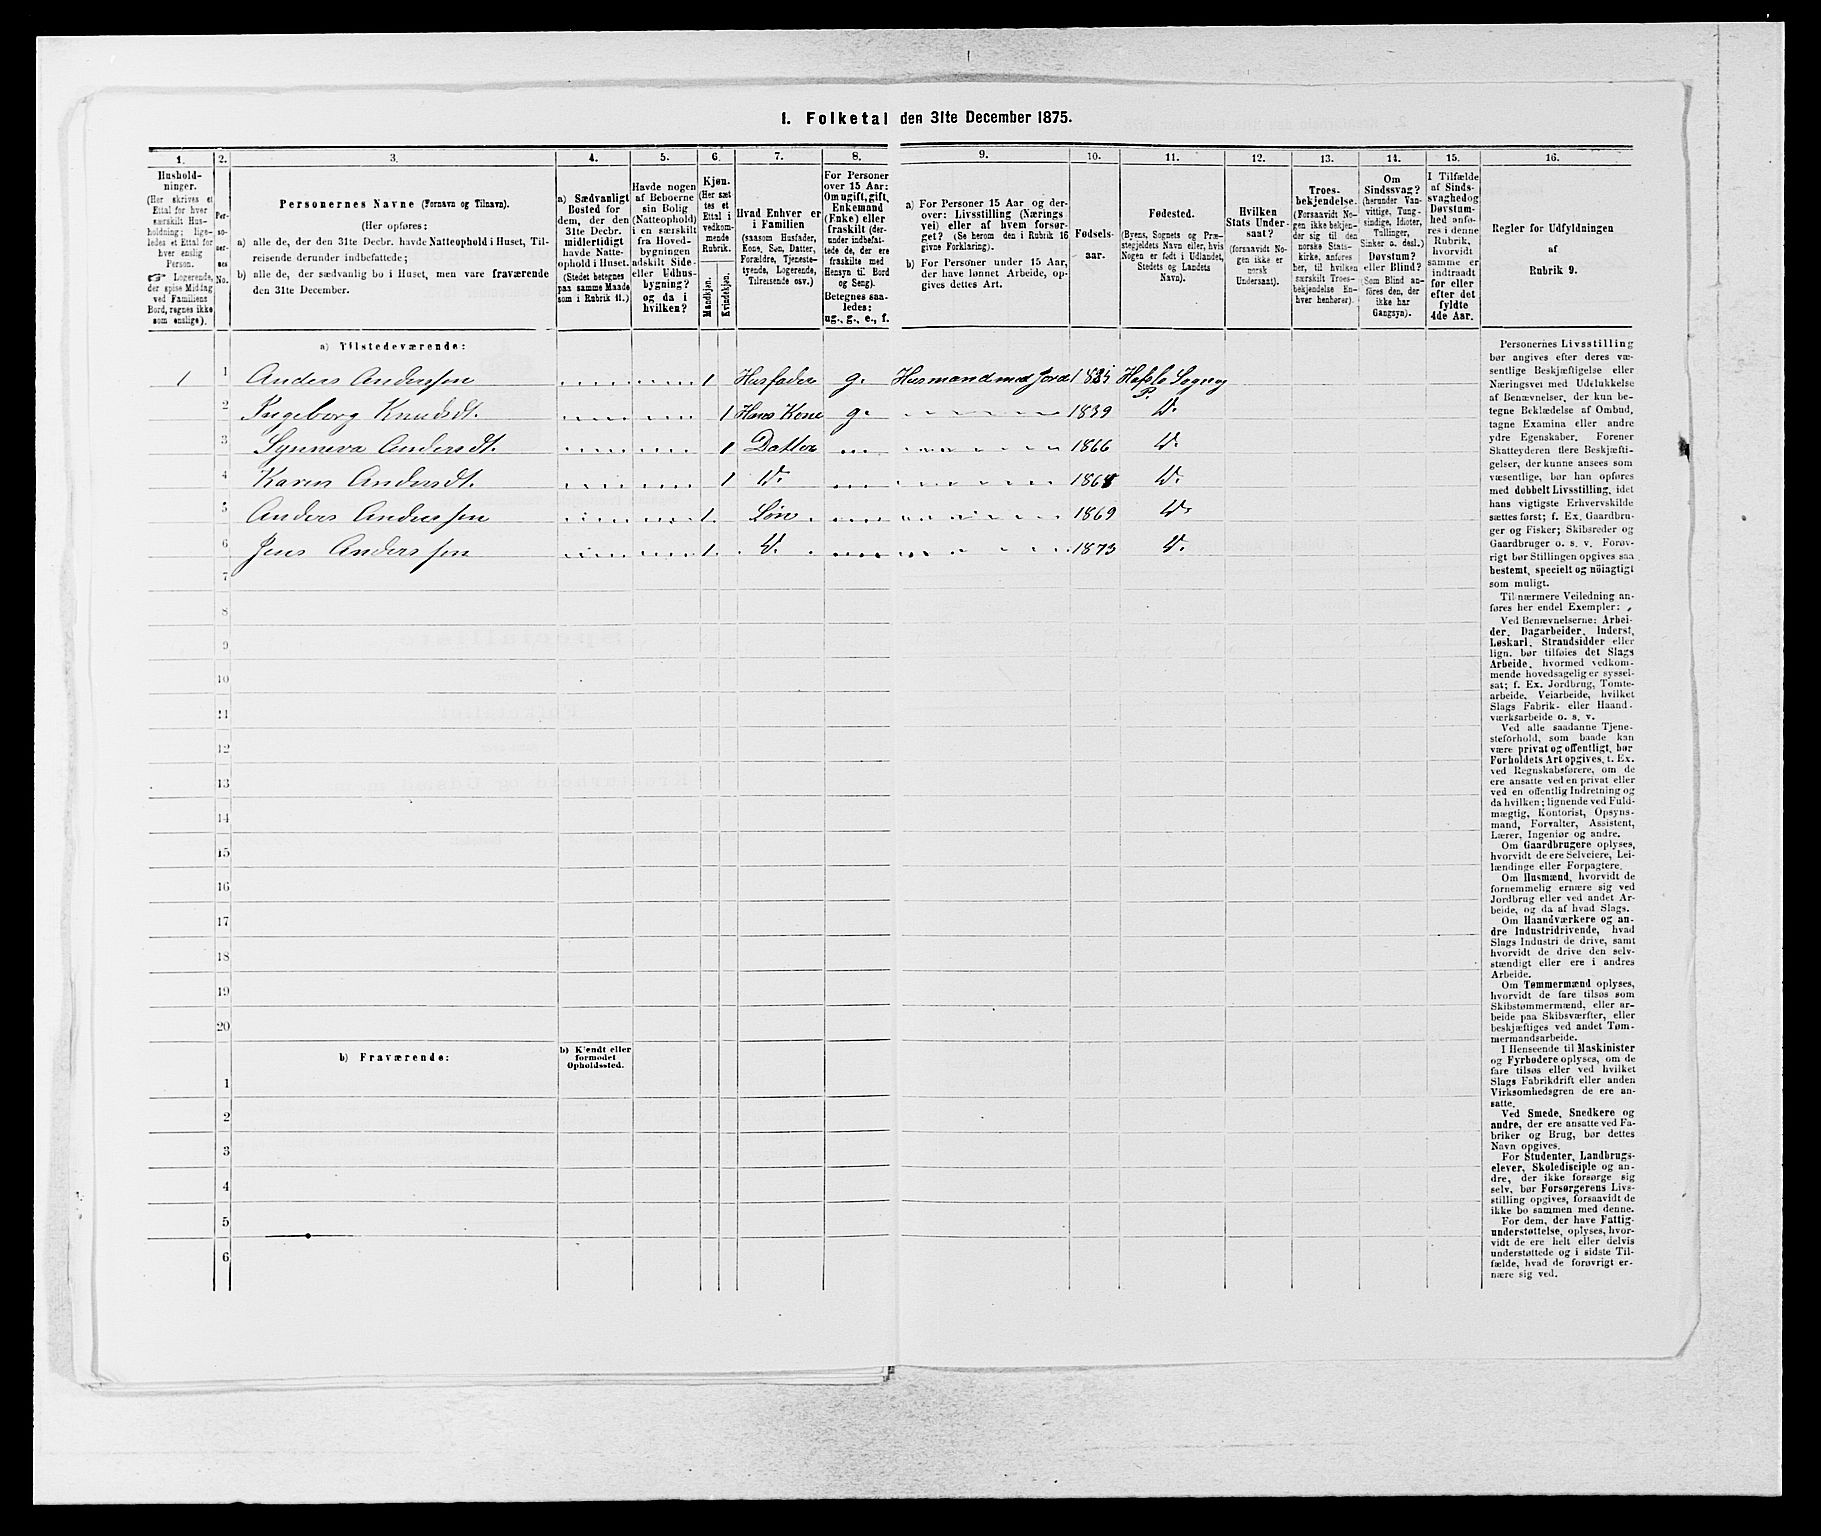 I. Folketal den 31te December 1875.
1. 2. 3. 4. 5. 6. 7. 8. 9. 10. 11. 12. 13. 14. 15. 16.
Hushold-
ninger.
(Her skrives et
Ettal for hver
særskilt Hus-
holdning; lige-
ledes et Ettal for
hver enslig
Person.
☞ Logerende,
der spise Middag
ved Familiens
Bord, regnes ikke
som enslige).
Per-
so-
ner-
nes
No.
Personernes Navne (Fornavn og Tilnavn).
(Her opføres:
a) alle de, der den 31te Decbr. havde Natteophold i Huset, Til-
reisende derunder indbefattede;
b) alle de, der sædvanlig bo i Huset, men vare fraværende
den 31te December.
a) Sædvanligt
Bosted for
dem, der den
31te Decbr.
midlertidigt
havde Natte-
ophold i Huset.
(Stedet betegnes
paa samme Maade
som i Rubrik 11.)
Havde nogen
af Beboerne
sin Bolig
(Natteophold)
i en særskilt
fra Hoved-
bygningen
adskilt Side-
eller Udhus-
bygning?
og da i
hvilken?
Kjøn.
(Her sæt-
tes et
Ettal i
vedkom-
mende
Rubrik.
Mandkjøn.
Kvindekjøn.
Hvad Enhver er
i Familien
(saasom Husfader,
Kone, Søn, Datter,
Forældre, Tjeneste-
tyende, Logerende,
Tilreisende osv.)
For Personer
over 15 Aar:
Om ugift, gift,
Enkemand
(Enke) eller
fraskilt (der-
under indbefat-
tede de, der ere
fraskilte med
Hensyn til Bord
og Seng).
Betegnes saa-
ledes:
ug., g., e., f.
a) For Personer 15 Aar og der-
over: Livsstilling (Nærings-
vei) eller af hvem forsør-
get? (Se herom den i Rubrik 16
givne Forklaring).
b) For Personer under 15 Aar,
der have lønnet Arbeide, op-
gives dettes Art.
Fødsels-
aar.
Fødested.
(Byens, Sognets og Præ-
stegjeldets Navn eller, hvis
Nogen er født i Udlandet,
Stedets og Landets
Navn).
Hvilken
Stats Under-
saat?
(forsaavidt No-
gen ikke er
norsk
Undersaat).
Troes-
bekjendelse.
(Forsaavidt No-
gen ikke bekjen-
der sig til den
norske Stats-
kirke, anføres
her, til hvilken
særskilt Troes-
bekjendelse En-
hver henhører).
Om
Sindssvag?
(herunder Van-
vittige, Tung-
sindige, Idioter,
Tullinger,
Sinker o. desl.)
Døvstum?
eller Blind?
(Som Blind an-
føres den, der
ikke har
Gangsyn).
I Tilfælde
af Sinds-
svaghed og
Døvstum-
hed anfø-
res i denne
Rubrik,
hvorvidt
samme er
indtraadt
før eller
efter det
fyldte
4de Aar.
Regler for Udfyldningen
af
Rubrik 9.
a) Tilstedeværende:
1 1 Anders Anderssen 1 Husfader g. Husmand med Jord 1835 Hafslo Sogn og P.
2 Ingeborg Knudsdt. 1 Hans Kone g. 1839 D.
3 Synneva Andersdt. 1 Datter 1866 D.
4 Karen Andersdt. 1 D. 1868 D.
5 Anders Anderssen 1 Søn 1869 D.
6 Jens Anderssen 1 D. 1873 D.
7
8
9
10
11
12
13
14
15
16
17
18
19
20
b) Fraværende:
b) Kjendt eller
formodet
Opholdssted.
1
2
3
4
5
6
Personernes Livsstilling
bør angives efter deres væ-
sentlige Beskjæftigelse eller
Næringsvei med Udelukkelse
af Benævnelser, der kun be-
tegne Beklædelse af Ombud,
tagne Examina eller andre
ydre Egenskaber. Forener
Skatteyderen flere Beskjæfti-
gelser, der kunne ansees som
væsentlige, bør han opføres
med dobbelt Livsstilling, idet
hans vigtigste Erhvervskilde
sættes først; f. Ex. Gaardbru-
ger og Fisker; Skibsreder og
Gaardbruger o. s. v. Forøv-
rigt bør Stillingen opgives saa
bestemt, specielt og nöiagtigt
som muligt.
Til nærmere Veiledning an-
føres her endel Exempler:
Ved Benævnelserne: Arbei-
der, Dagarbeider, Inderst,
Løskarl, Strandsidder eller
lign. bør tilføies det Slags
Arbeide, hvormed vedkom-
mende hovedsagelig er syssel-
sat; f. Ex. Jordbrug, Tomte-
arbeide, Veiarbeide, hvilket
Slags Fabrik- eller Haand-
værksarbeide o. s. v.
Ved alle saadanne Tjene-
steforhold, som baade kan
være privat og offentligt, bør
Forholdets Art opgives, f. Ex.
ved Regnskabsførere, om de
ere ansatte ved en privat eller
ved en offentlig Indretning og
da hvilken; lignende ved Fuld-
mægtig, Kontorist, Opsyns-
mand, Forvalter, Assistent,
Lærer, Ingeniør og andre.
Om Gaardbrugere oplyses,
hvorvidt de ere Selveiere, Lei-
lændinge eller Forpagtere.
Om Husmænd, hvorvidt de
fornemmelig ernære sig ved
Jordbrug eller ved andet Ar-
beide, og da af hvad Slags.
Om Haandværkere og an-
dre Industridrivende, hvad
Slags Industri de drive, samt
hvorvidt de drive den selv-
stændigt eller ere i andres
Arbeide.
Om Tømmermænd oplyses,
hvorvidt de fare tilsøs som
Skibstømmermænd, eller ar-
beide paa Skibsværfter, eller
beskjæftiges ved andet Tøm-
mermandsarbeide.
I Henseende til Maskinister
og Fyrbødere oplyses, om de
fare tilsøs eller ved hvilket
Slags Fabrikdrift eller anden
Virksomhedsgren de ere an-
satte.
Ved Smede, Snedkere og
andre, der ere ansatte ved Fa-
briker og Brug, bør dettes
Navn opgives.
For Studenter, Landbrugs-
elever, Skoledisciple og an-
dre, der ikke forsørge sig
selv, bør Forsørgerens Livs-
stilling opgives, forsaavidt de
ikke bo sammen med denne.
For dem, der have Fattig-
understøttelse, oplyses, hvor-
vidt de ere helt eller delvis
understøttede og i sidste Til-
fælde, hvad de forøvrigt er-
nære sig ved.